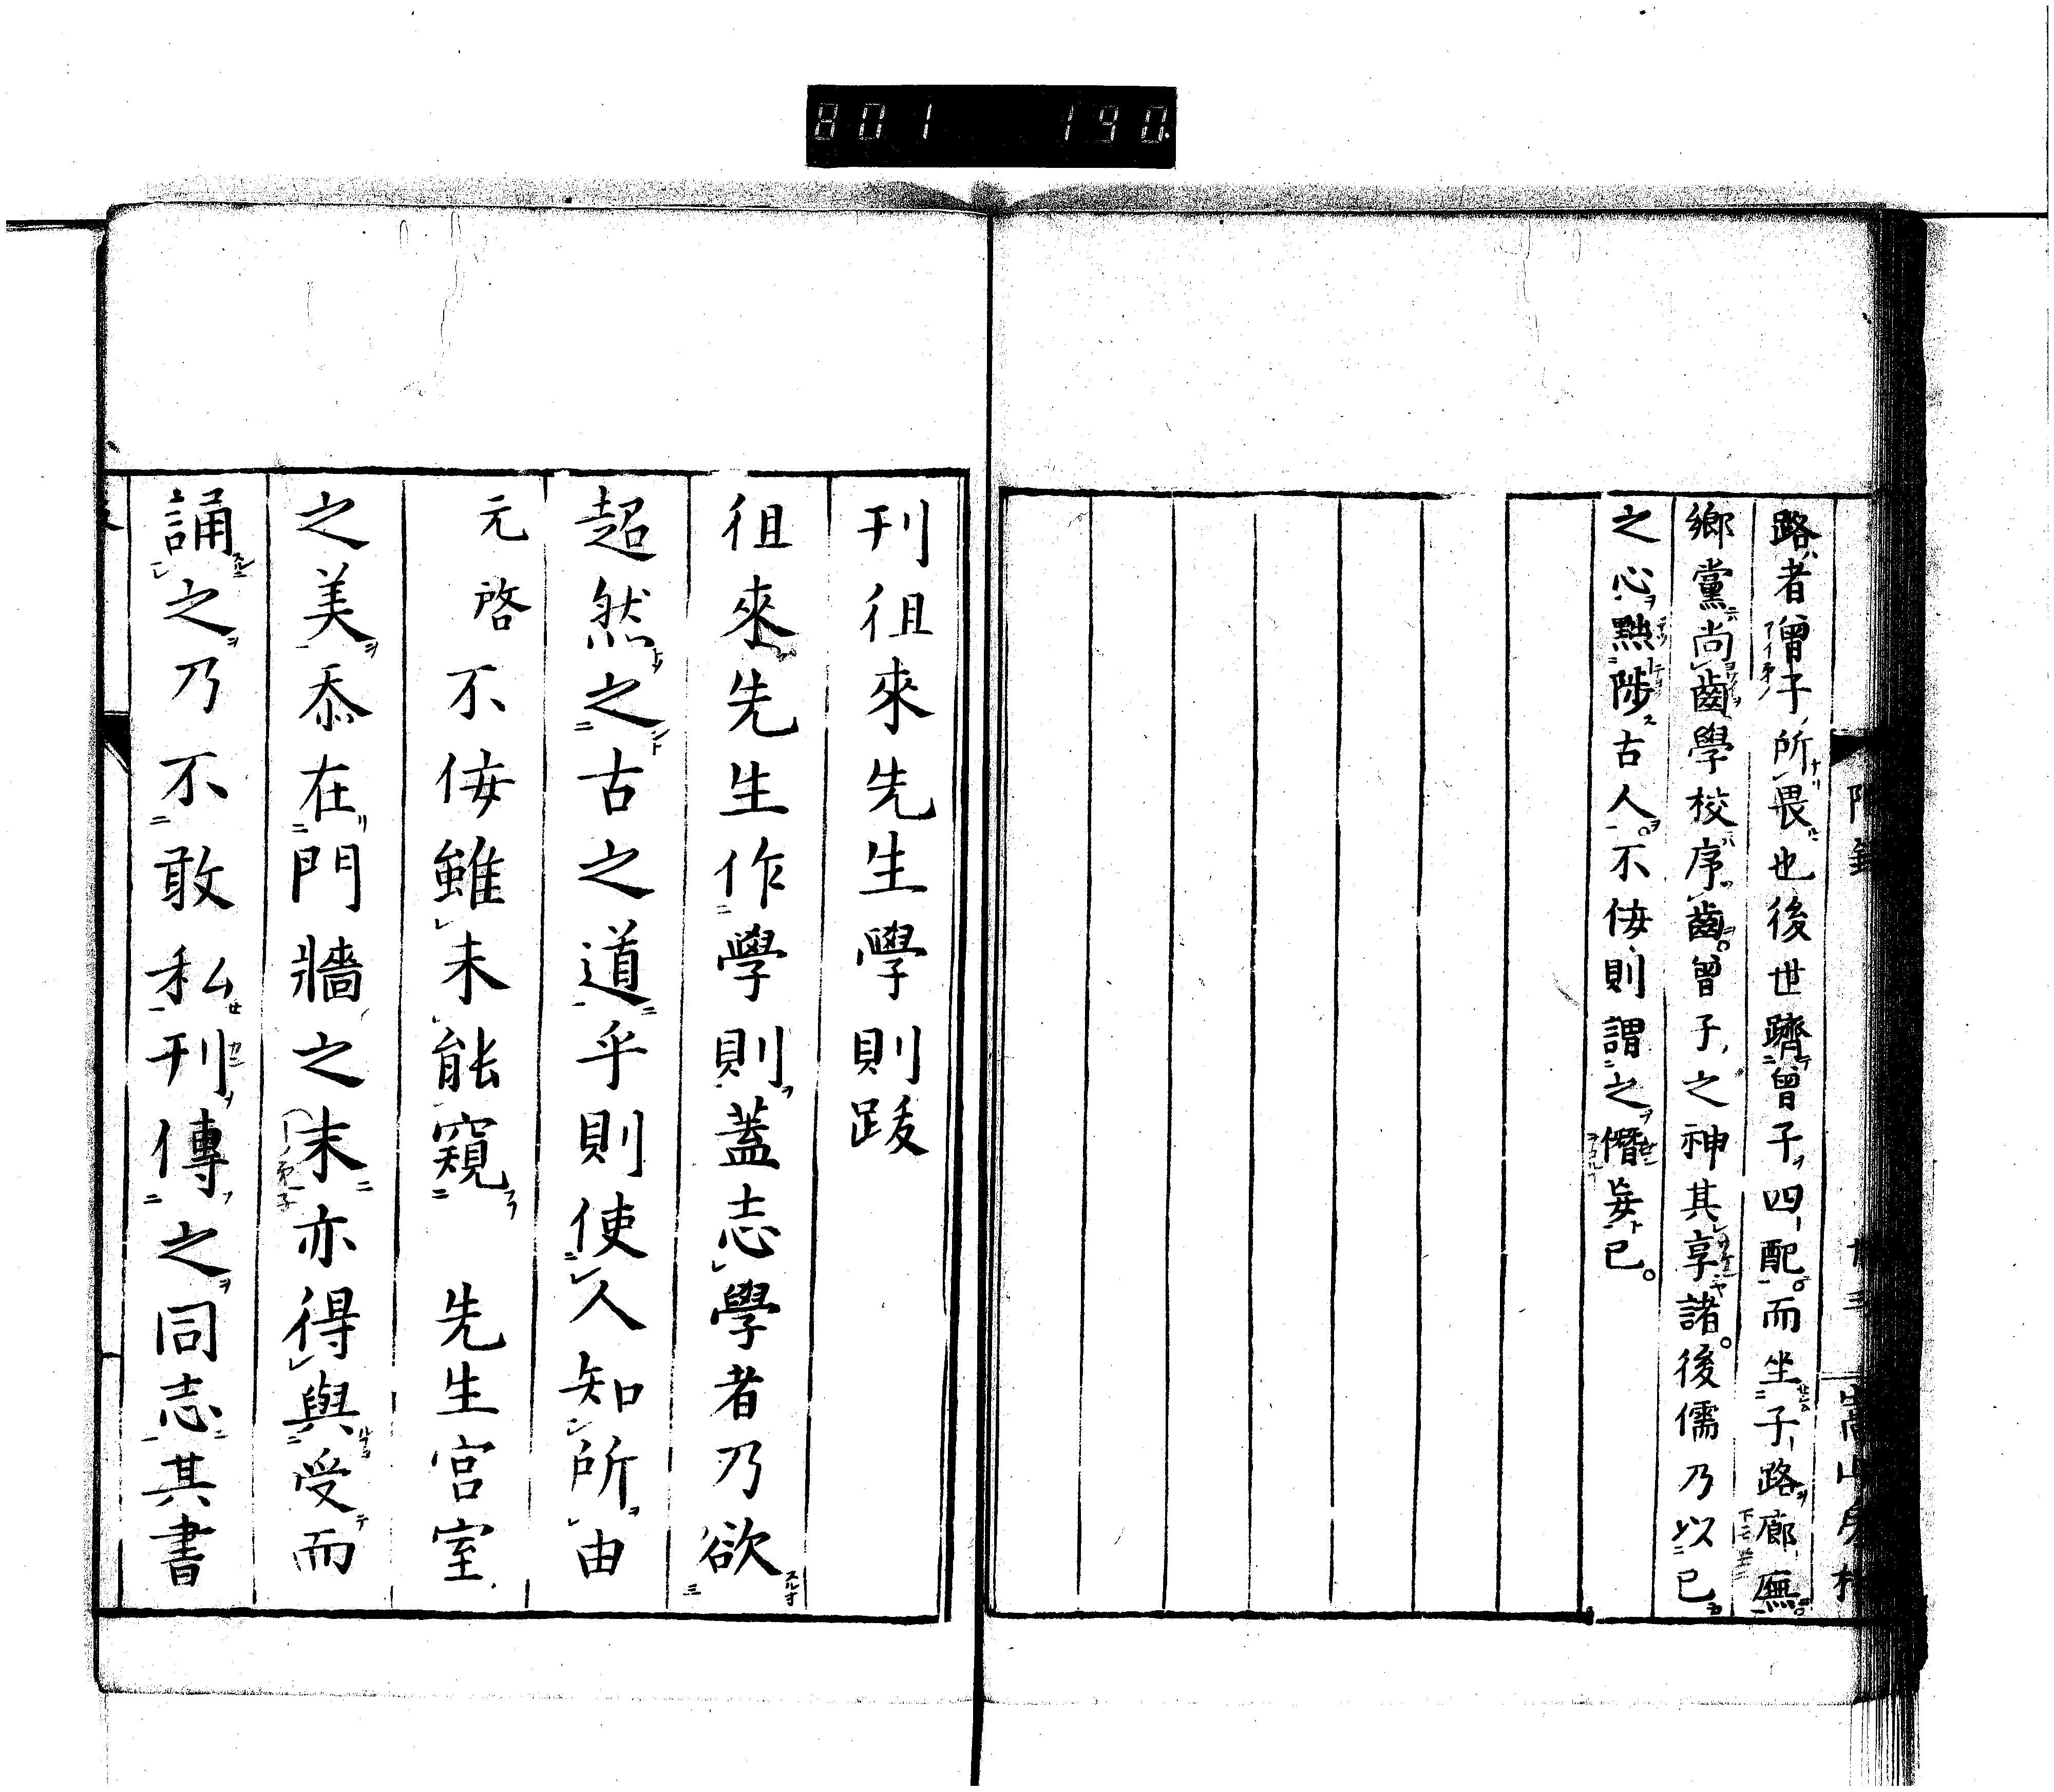 801 190
路者曾子所畏也後世躋曾子四配而坐子路廊廡
鄕黨尚齒學校序齒曾子之神其享諸後儒乃以己
之心黜陟古人不侫則謂之僭妄已
刊徂來先生學則跋
徂來先生作學則蓋志學者乃欲
超然之古之道乎則使人知所由
元啓不侫雖未能窺 先生宮室
之美忝在門牆之末亦得與受而
誦之乃不敢私刊傳之同志其書